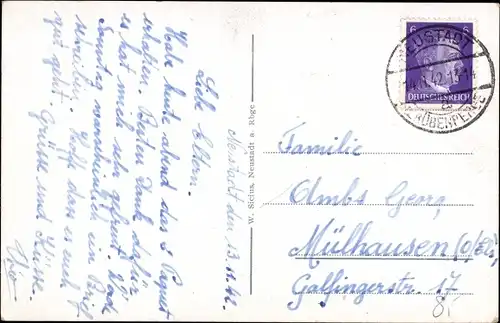 Neustadt den 13.11.42.
Liebe Eltern.
Habe heute abend das 2 Paquet
erhalten. Besten Dank dafür
es hat mich sehr gefreut.
Sonntag warscheinlich ein Brief
schreiben. Hoffe dass es euch
gut geht. Grüsse und Küsse.
W. Sielus, Neustadt a. Rbge
6 6
DEUTSCHES REICH
NEUSTADT
14.11.42
Familie
Ambs Georg
Mülhausen (o/Els)
Galfingerstr. 17
8.